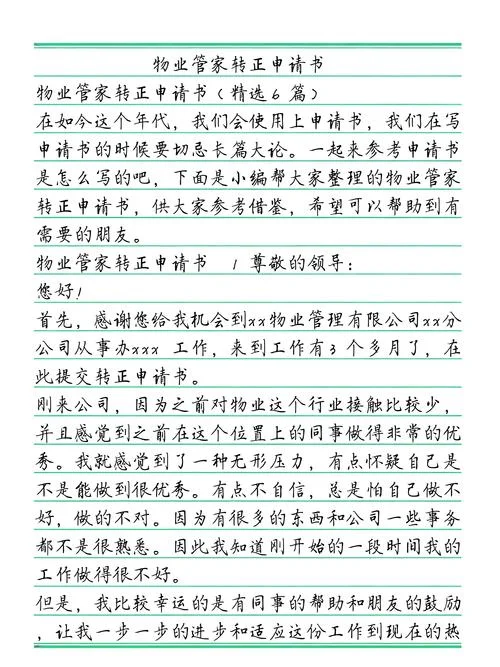 物业管家转正申请书
物业管家转正申请书（精选6 篇）
在如今这个年代，我们会使用上申请书，我们在写
申请书的时候要切忌长篇大论。一起来参考申请书
是怎么写的吧，下面是小编帮大家整理的物业管家
转正申请书，供大家参考借鉴，希望可以帮助到有
需要的朋友。
物业管家转正申请书　1 尊敬的领导：
您好！
首先，感谢您给我机会到xx物业管理有限公司xx分
公司从事办xxx 工作，来到工作有3 个多月了，在
此提交转正申请书。
刚来公司，因为之前对物业这个行业接触比较少，
并且感觉到之前在这个位置上的同事做得非常的优
秀。我就感觉到了一种无形压力，有点怀疑自己是
不是能做到很优秀。有点不自信，总是怕自己做不
好，做的不对。因为有很多的东西和公司一些事务
都不是很熟悉。因此我知道刚开始的一段时间我的
工作做得很不好。
但是，我比较幸运的是有同事的帮助和朋友的鼓励
，让我一步一步的进步和适应这份工作到现在的热